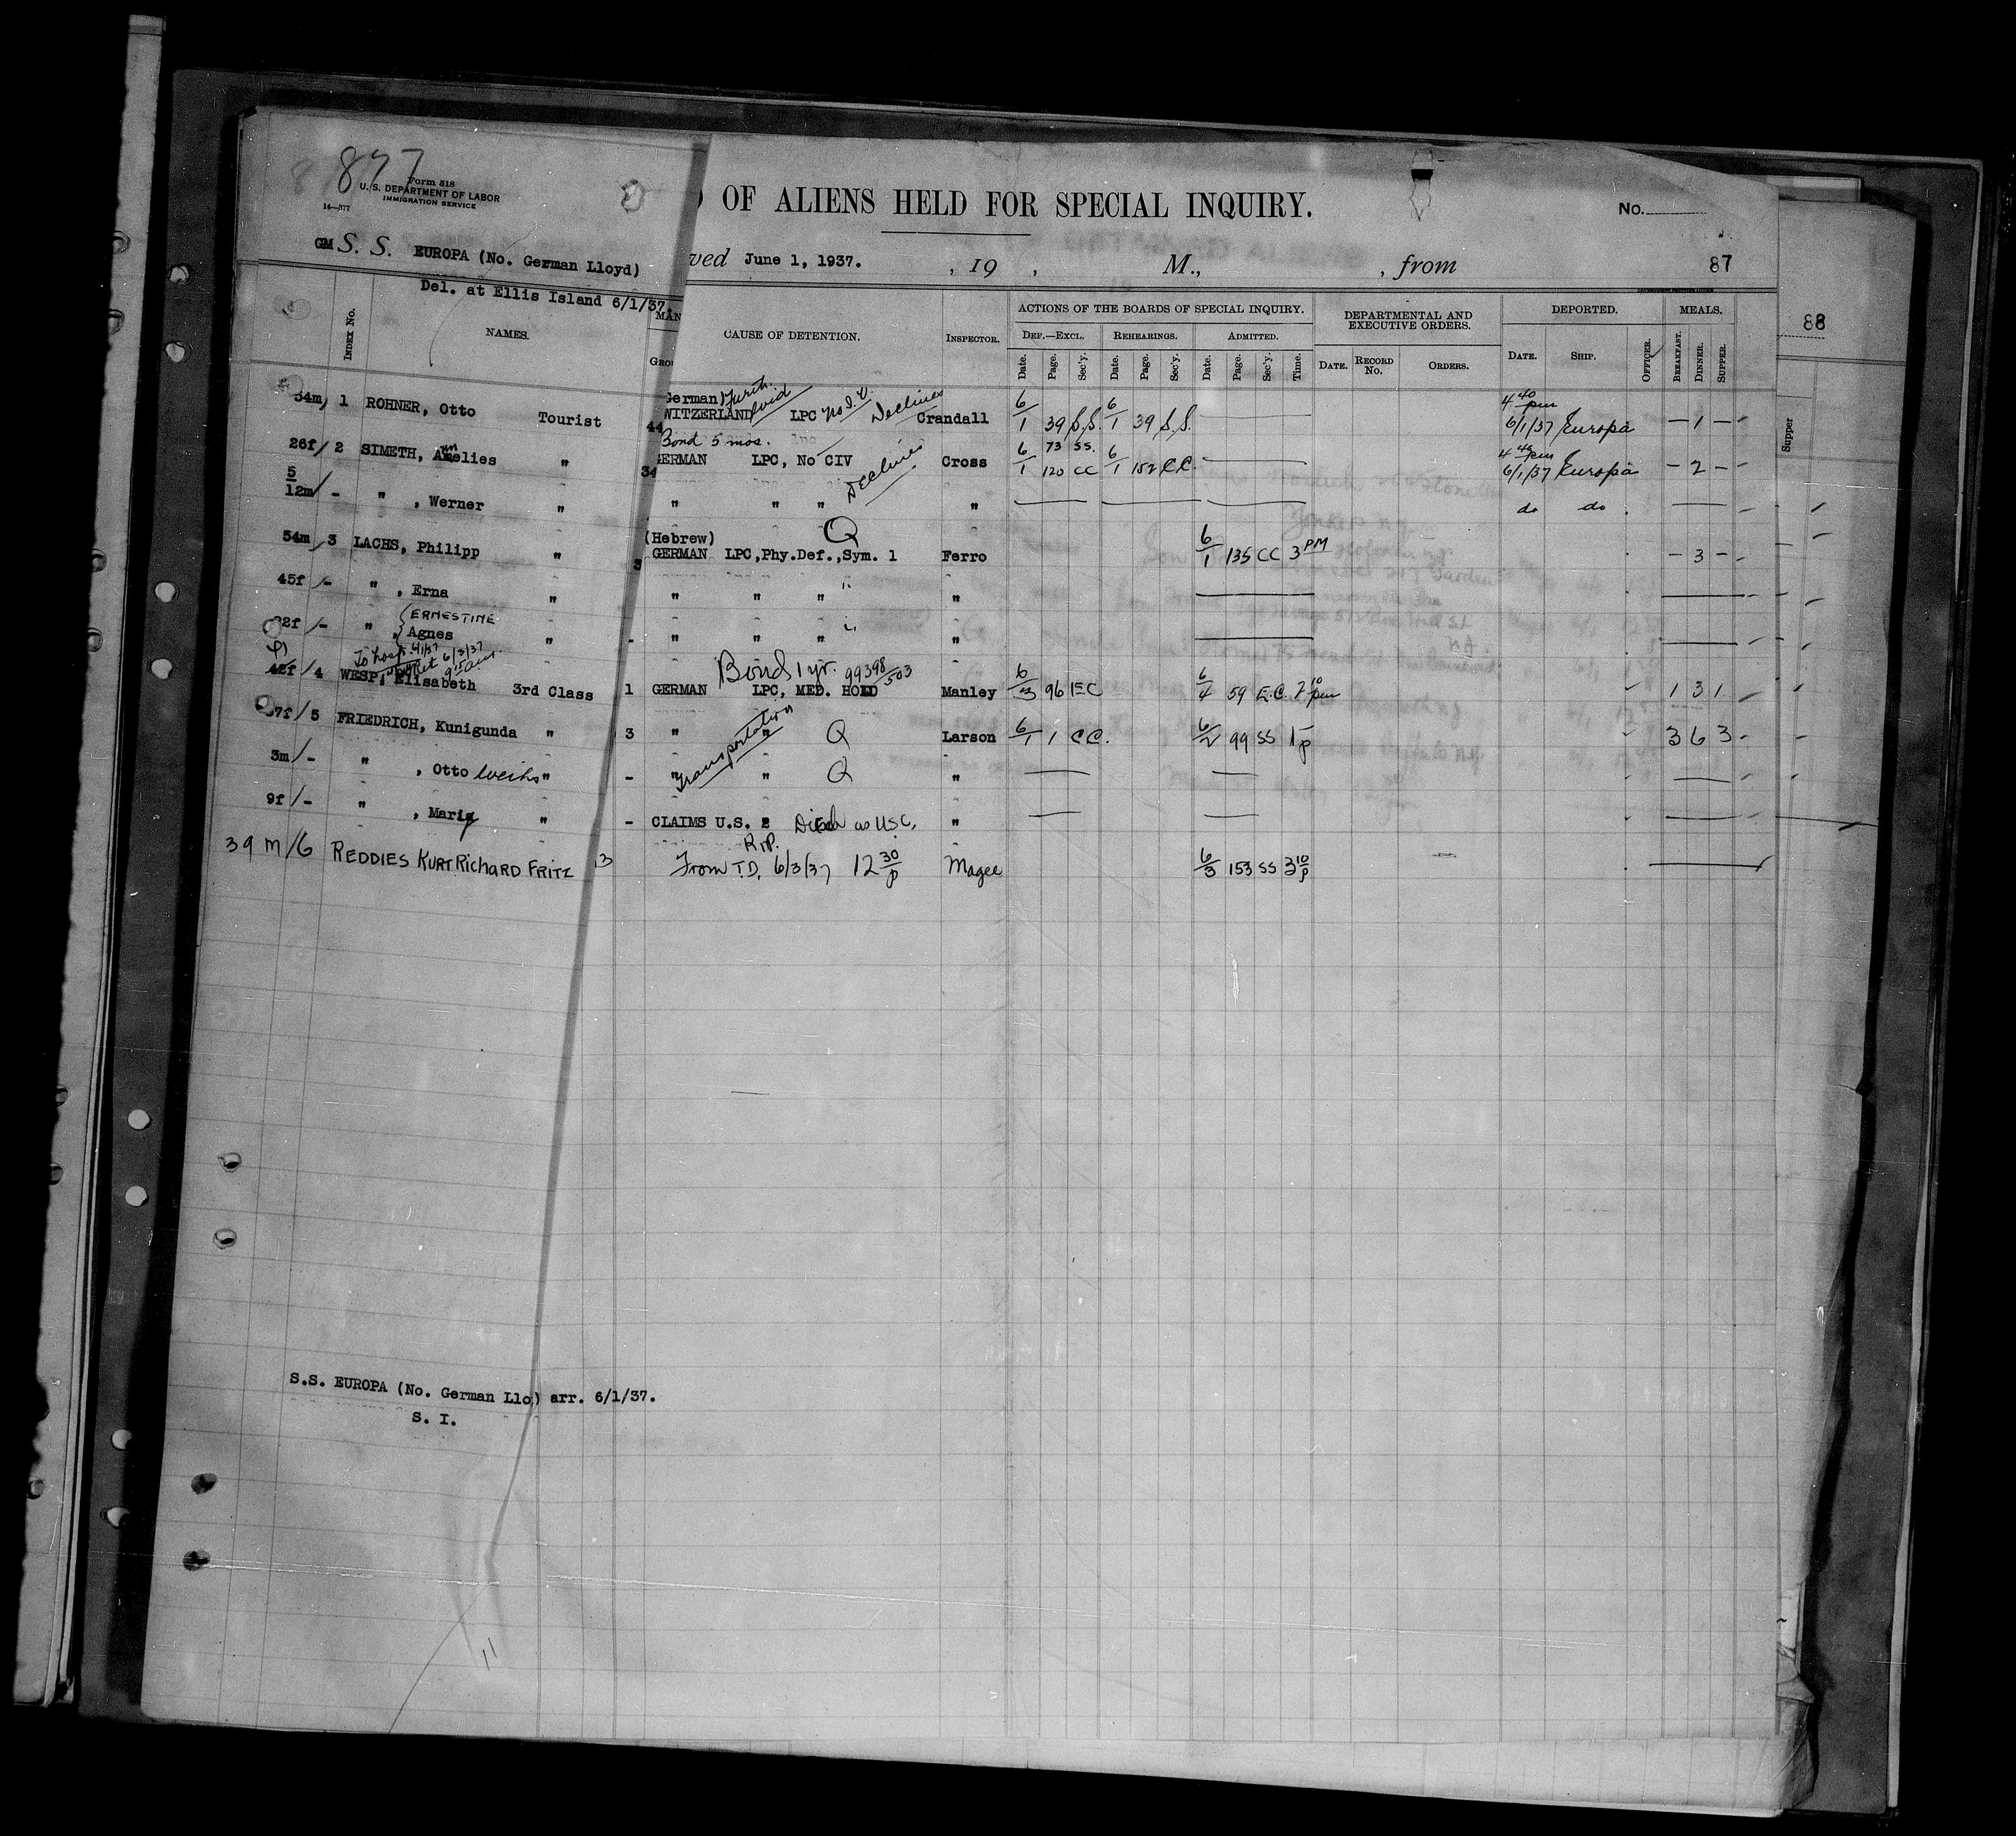 877
Form 518
U. S. DEPARTMENT OF LABOR
IMMIGRATION SERVICE
14—577
OF ALIENS HELD FOR SPECIAL INQUIRY.
No.
GM S. S. EUROPA (No. German Lloyd)
ved June 1, 1937. , 19 , M., , from
87
88
Del. at Ellis Island 6/1/37
INDEX No. NAMES. CAUSE OF DETENTION. INSPECTOR. ACTIONS OF THE BOARDS OF SPECIAL INQUIRY. DEPARTMENTAL AND EXECUTIVE ORDERS. DEPORTED. MEALS.
DEF.—EXCL. REHEARINGS. ADMITTED.
Date. Page. Sec'y. Date. Page. Sec'y. Date. Page. Sec'y. Time. DATE. RECORD No. ORDERS. DATE. SHIP. OFFICER. BREAKFAST. DINNER. SUPPER.
Supper
34m/ 1 ROHNER, Otto Tourist 44 German WITZERLAND LPC Declines Crandall 6/1 39 S.S. 6/1 39 S.S. 4 40 pm 6/1/37 Europa — 1 —
Bond 5 mos.
26f/ 2 SIMETH, Amelies " 34 GERMAN LPC, No CIV Declines Cross 6/1 73 SS. 120 CC 6/1 152 C.C. 4 40 pm 6/1/37 Europa — 2 —
5/12m/ - " , Werner " " " " " do do
54m/ 3 LACHS, Philipp " 3 (Hebrew) GERMAN LPC,Phy.Def.,Sym. 1 Q Ferro 6/1 135 CC 3 PM — 3 —
45f/- " , Erna " " " " "
22f/- " , { ERNESTINE Agnes " - " " " "
To hosp. 6/1/37 6/3/37
42f/ 4 WESP, Elisabeth 3rd Class 1 GERMAN LPC, MED. HOLD Bond 1 yr. 99398/503 Manley 6/3 96 EC 6/4 59 E.C. 2 10 pm 1 3 1
37f/ 5 FRIEDRICH, Kunigunda " 3 " " Q Transportation Larson 6/1 1 CC. 6/2 99 SS 1 p 3 6 3
3m/- " , Otto " - " " Q "
9f/- " , Maria " - CLAIMS U.S. as USC. "
39 m/6 REDDIES KURT RICHARD FRITZ 3 From T.D. 6/3/37 12 30 p Magee 6/3 153 SS 3 10 p
S.S. EUROPA (No. German Llo) arr. 6/1/37.
S. I.
11